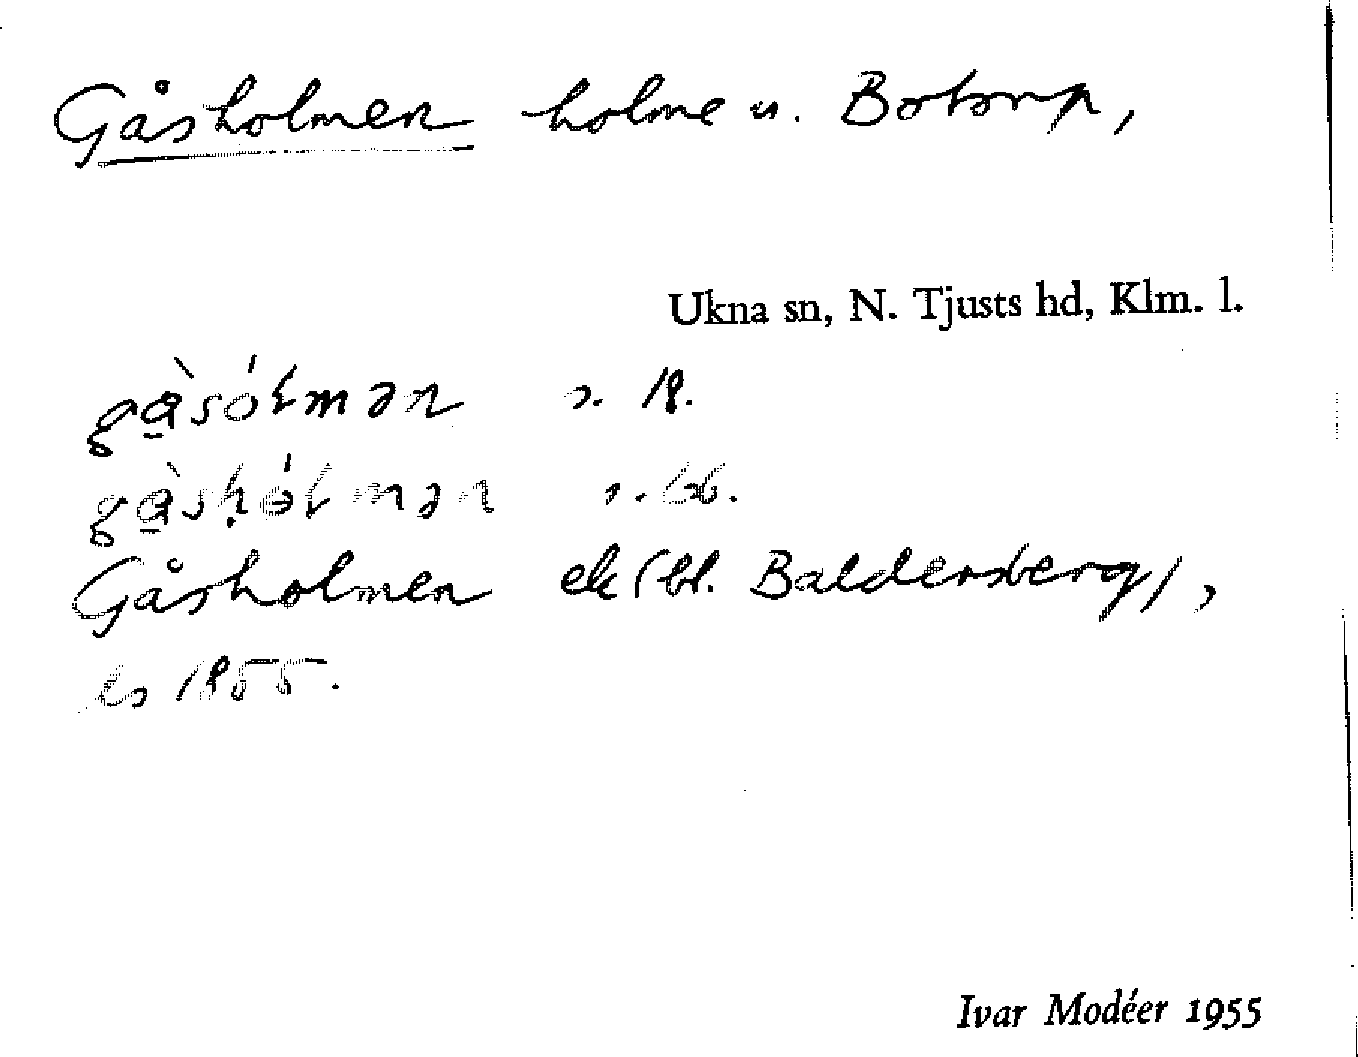 Gåsholmen holme u. Botorp,
Ukna sn, N. Tjusts hd, Klm. l.
gàsólmən s. 18.
gàsḥólmən s. 66.
Gåsholmen ek (bl. Baldersberg),
1855.
Ivar Modéer 1955